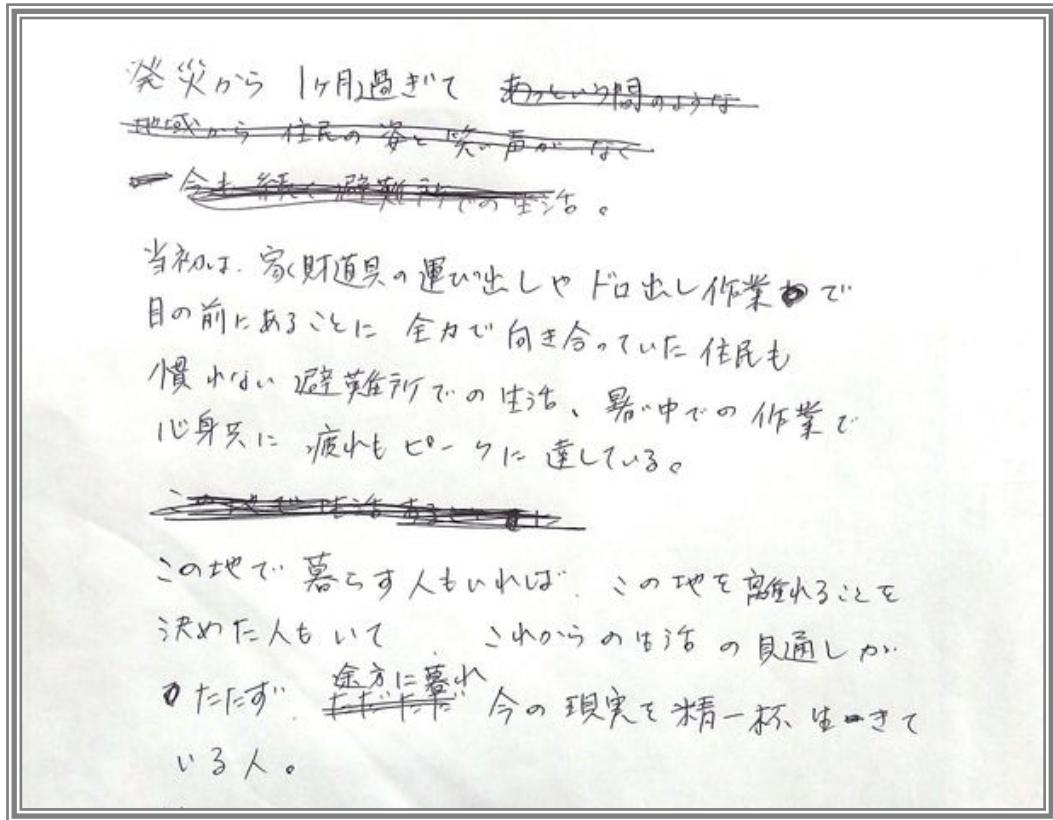 発災から 1ヶ月過ぎて あっという間のような
地域から 住民の姿と 笑い声がなく
今も続く避難所での生活。
当初は、家財道具の運び出しや ドロ出し作業で
目の前にあることに 全力で向き合っていた住民も
慣れない避難所での生活、暑い中での作業で
心身共に 疲れもピークに達している。
この地で生活
この地で暮らす人もいれば、この地を離れることを
決めた人もいて これからの生活の見通しが
途方に暮れ
たたず ただただ 今の現実を精一杯生きて
いる人。